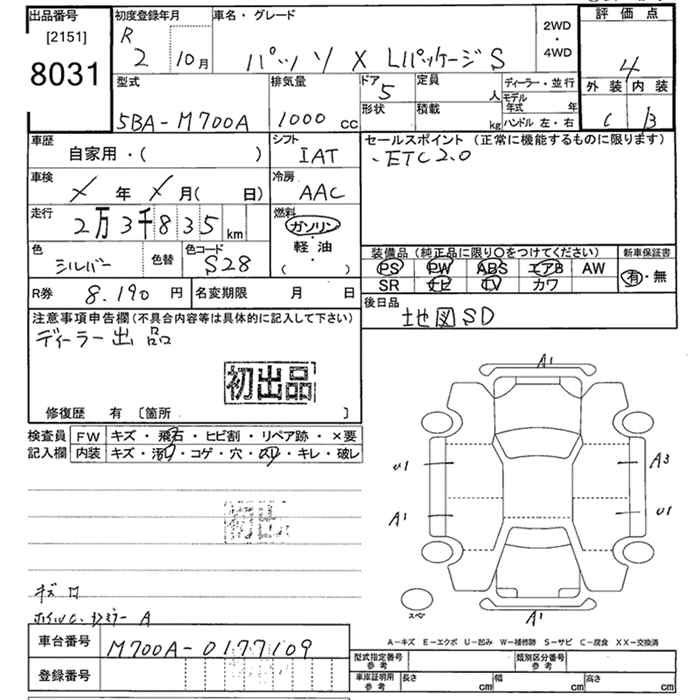 出品番号
[2151]
8031
初度登録年月
R 2 10月
車名・グレード
パッソ X Lパッケージ S
2WD
・
4WD
評価点
4
外装 内装
C B
型式
5BA-M700A
排気量
1000 cc
ドア
5
定員
人
形状
積載
kg
ディーラー・並行
モデル
年式 年
ハンドル 左・右
車歴
自家用・( )
シフト
IAT
セールスポイント (正常に機能するものに限ります)
・ETC2.0
車検
年 月( 日)
冷房
AAC
走行
2万3千835 km
燃料
ガソリン
・
軽油
・
( )
色
シルバー
色替
色コード
S28
装備品 (純正品に限り○をつけてください)
新車保証書
PS PW ABS エアB AW
SR ナビ TV カワ
有・無
R券 8.190円
名変期限 月 日
後日品
地図SD
注意事項申告欄(不具合内容等は具体的に記入して下さい)
ディーラー出品
初出品
修復歴 有 [箇所 ]
検査員
記入欄
FW キズ・飛石・ヒビ割・リペア跡・×要
内装 キズ・汚れ・コゲ・穴・スリ・キレ・破レ
A1
U1
A3
A1
U1
A1
スペア
A-キズ E-エクボ U-凹み W-補修跡 S-サビ C-腐食 XX-交換済
車台番号
M700A-0177109
登録番号
型式指定番号
参考
類別区分番号
参考
車庫証明用
参考
長さ cm
幅 cm
高さ cm